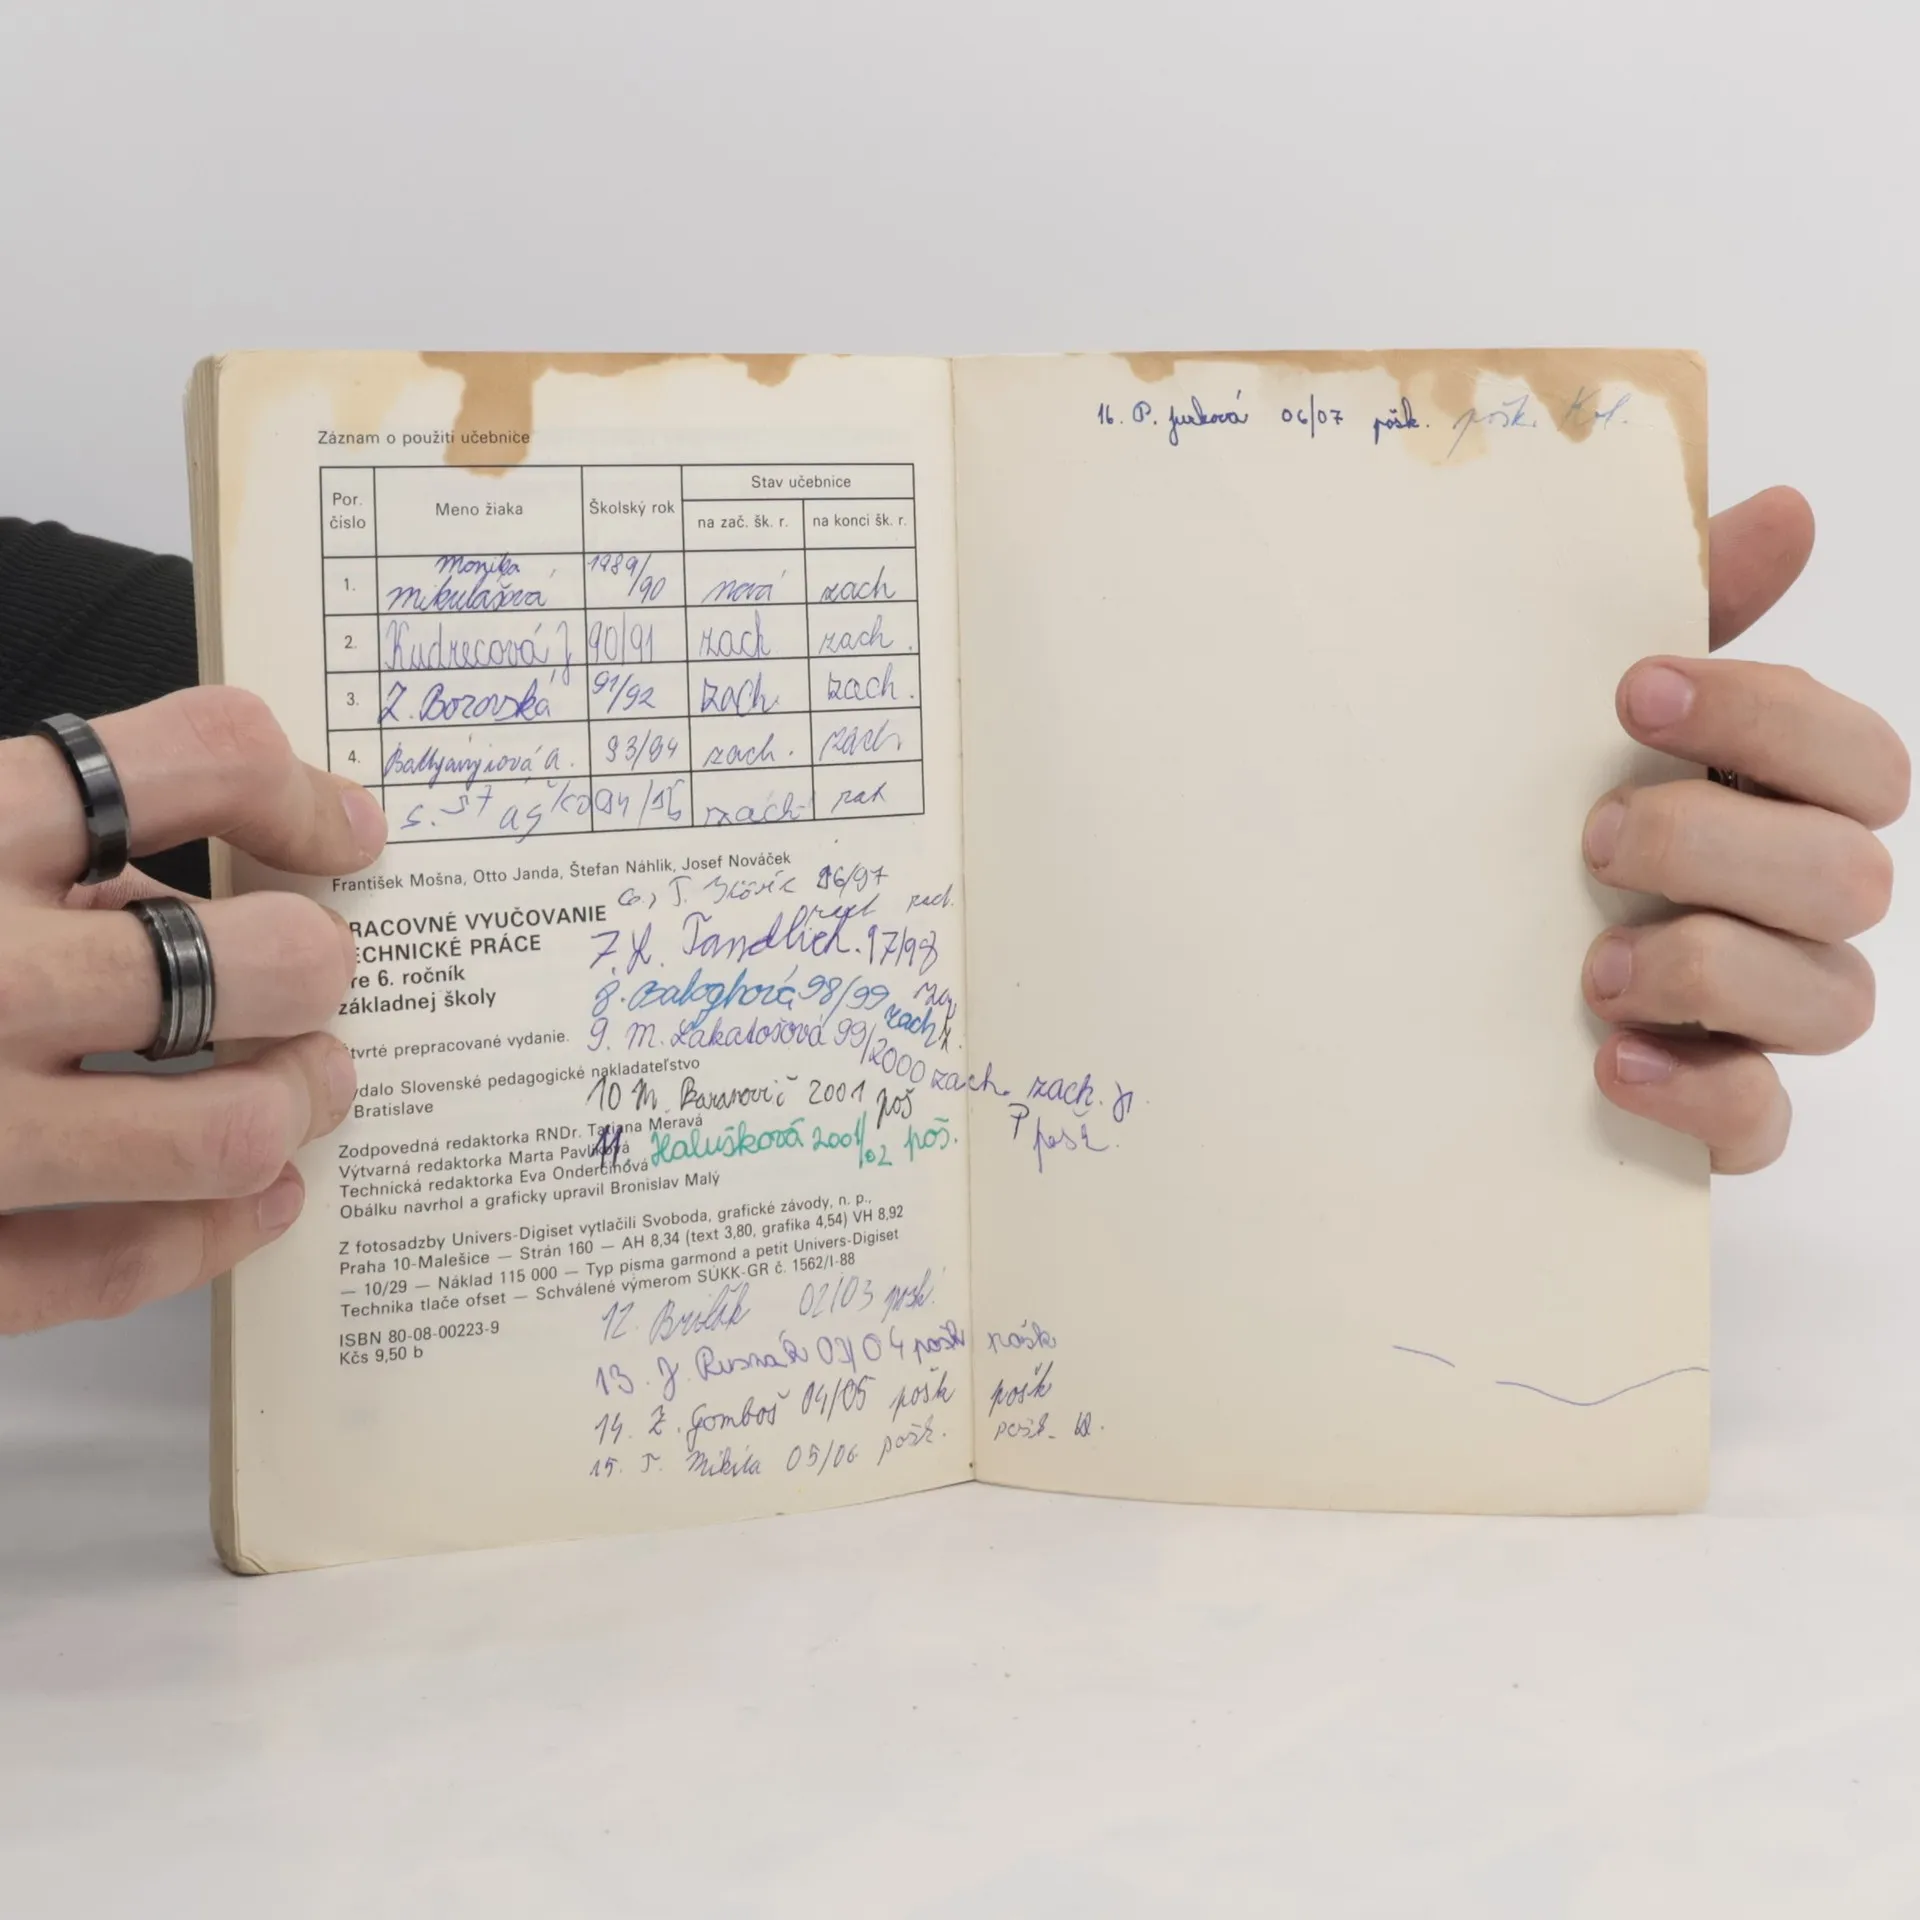 Záznam o použití učebnice
Por. číslo
Meno žiaka
Školský rok
Stav učebnice
na zač. šk. r.
na konci šk. r.
1. Monika Mikulášová 1989/90 nová zach
2. Kudrecová J 90/91 zach zach.
3. Z. Borovská 91/92 zach. zach.
4. 93/94 zach. zach.
S. 94/95 zach
František Mošna, Otto Janda, Štefan Náhlik, Josef Nováček
6., T. 96/97
RACOVNÉ VYUČOVANIE
zach.
ECHNICKÉ PRÁCE
7. L. Tandlich. 97/98
re 6. ročník
základnej školy
8. Baloghová 98/99 zach
9. M. Lakatošová 99/2000 zach. zach.
tvrté prepracované vydanie.
ydalo Slovenské pedagogické nakladateľstvo
Bratislave
10 M. Baranovič 2001 poš
Zodpovedná redaktorka RNDr. Tatiana Meravá
11. Halušková 2001/02 poš.
Výtvarná redaktorka Marta Pavlíková
Technická redaktorka Eva Onderčinová
Obálku navrhol a graficky upravil Bronislav Malý
Z fotosadzby Univers-Digiset vytlačili Svoboda, grafické závody, n. p.,
Praha 10-Malešice — Strán 160 — AH 8,34 (text 3,80, grafika 4,54) VH 8,92
— 10/29 — Náklad 115 000 — Typ písma garmond a petit Univers-Digiset
Technika tlače ofset — Schválené výmerom SÚKK-GR č. 1562/I-88
12. 02/03
ISBN 80-08-00223-9
Kčs 9,50 b
13. J. Rusnák 03/04 pošk pošk
14. Z. Gomboš 04/05 pošk pošk
15. T. Mikita 05/06 pošk. pošk.
16. P. Jurková 06/07 pošk. pošk.